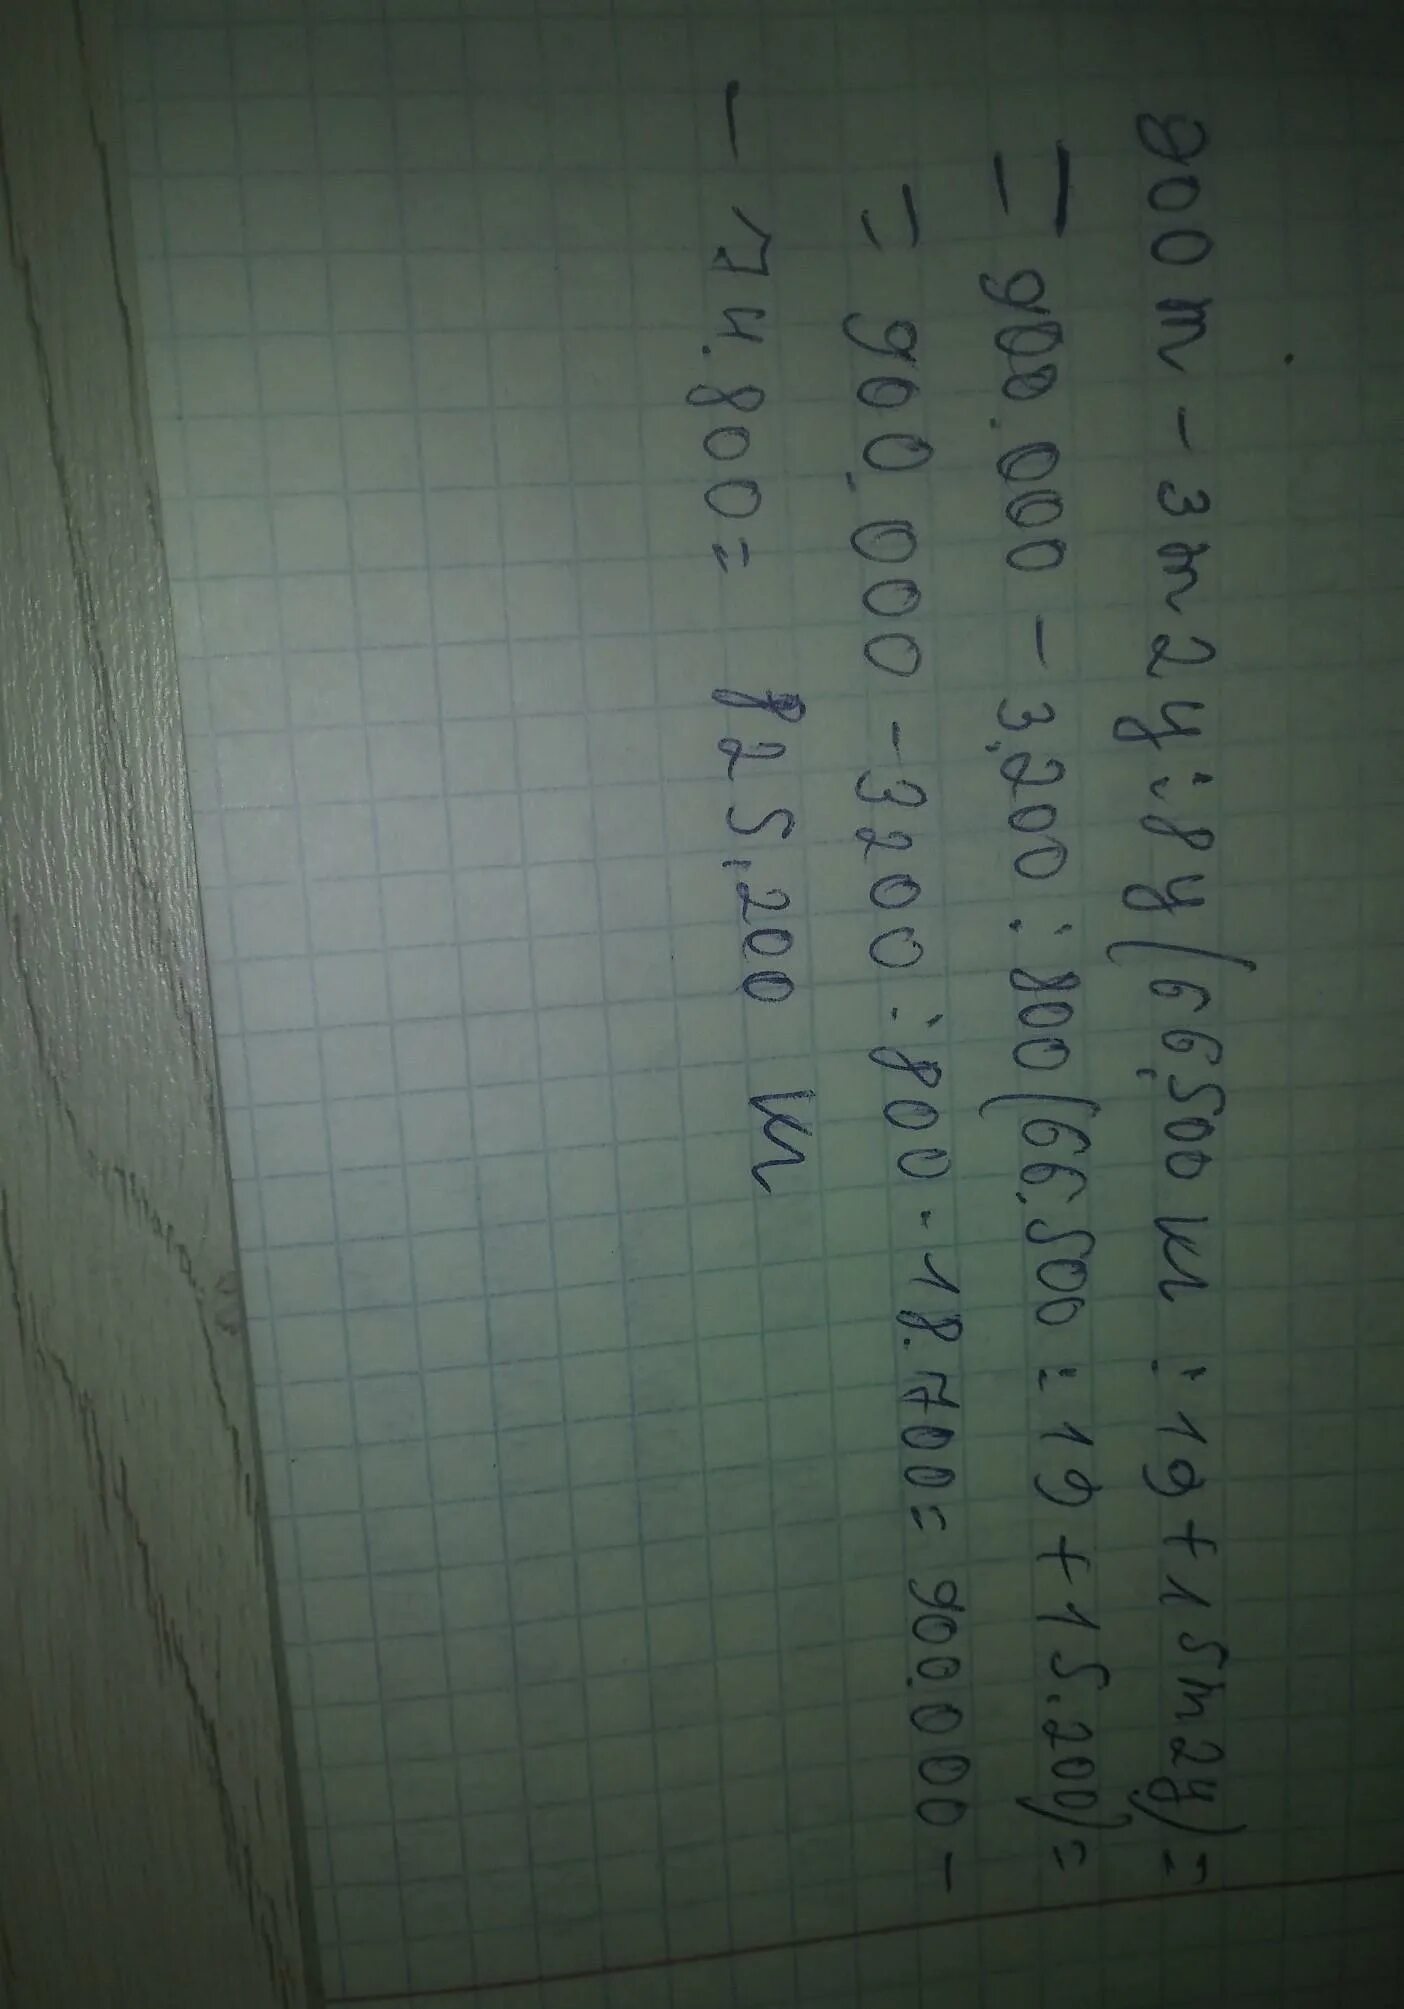 900 т - 3 т 2 ц : 8 ц (66,500 кг : 19 + 15 т 2 ц) =
= 900.000 - 3,200 : 800 (66.500 : 19 + 15.200) =
= 900.000 - 3200 : 800 · 18.700 = 900.000 -
- 74.800 = 825,200 кг